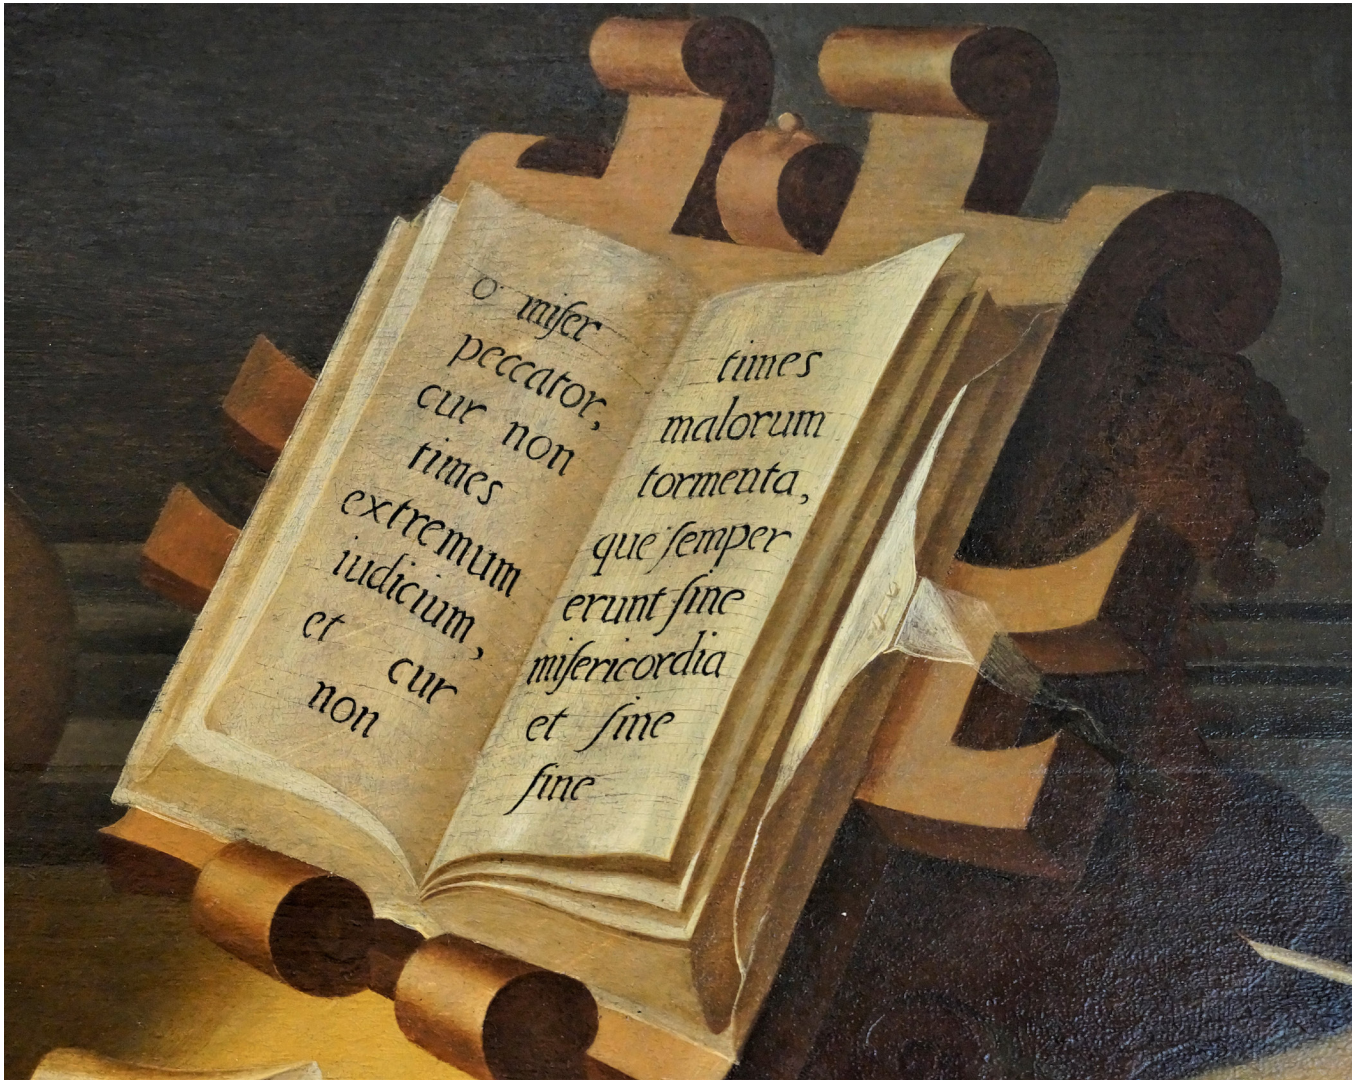 o miſer
peccator,
cur non
times
extremum
iudicium,
et cur
non
times
malorum
tormenta,
que ſemper
erunt ſine
miſericordia
et ſine
fine